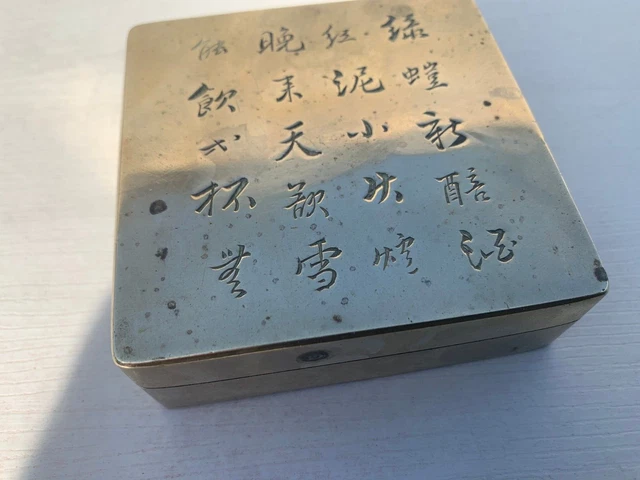 綠螘新醅酒
紅泥小火爐
晚来天欲雪
能飲弌杯無